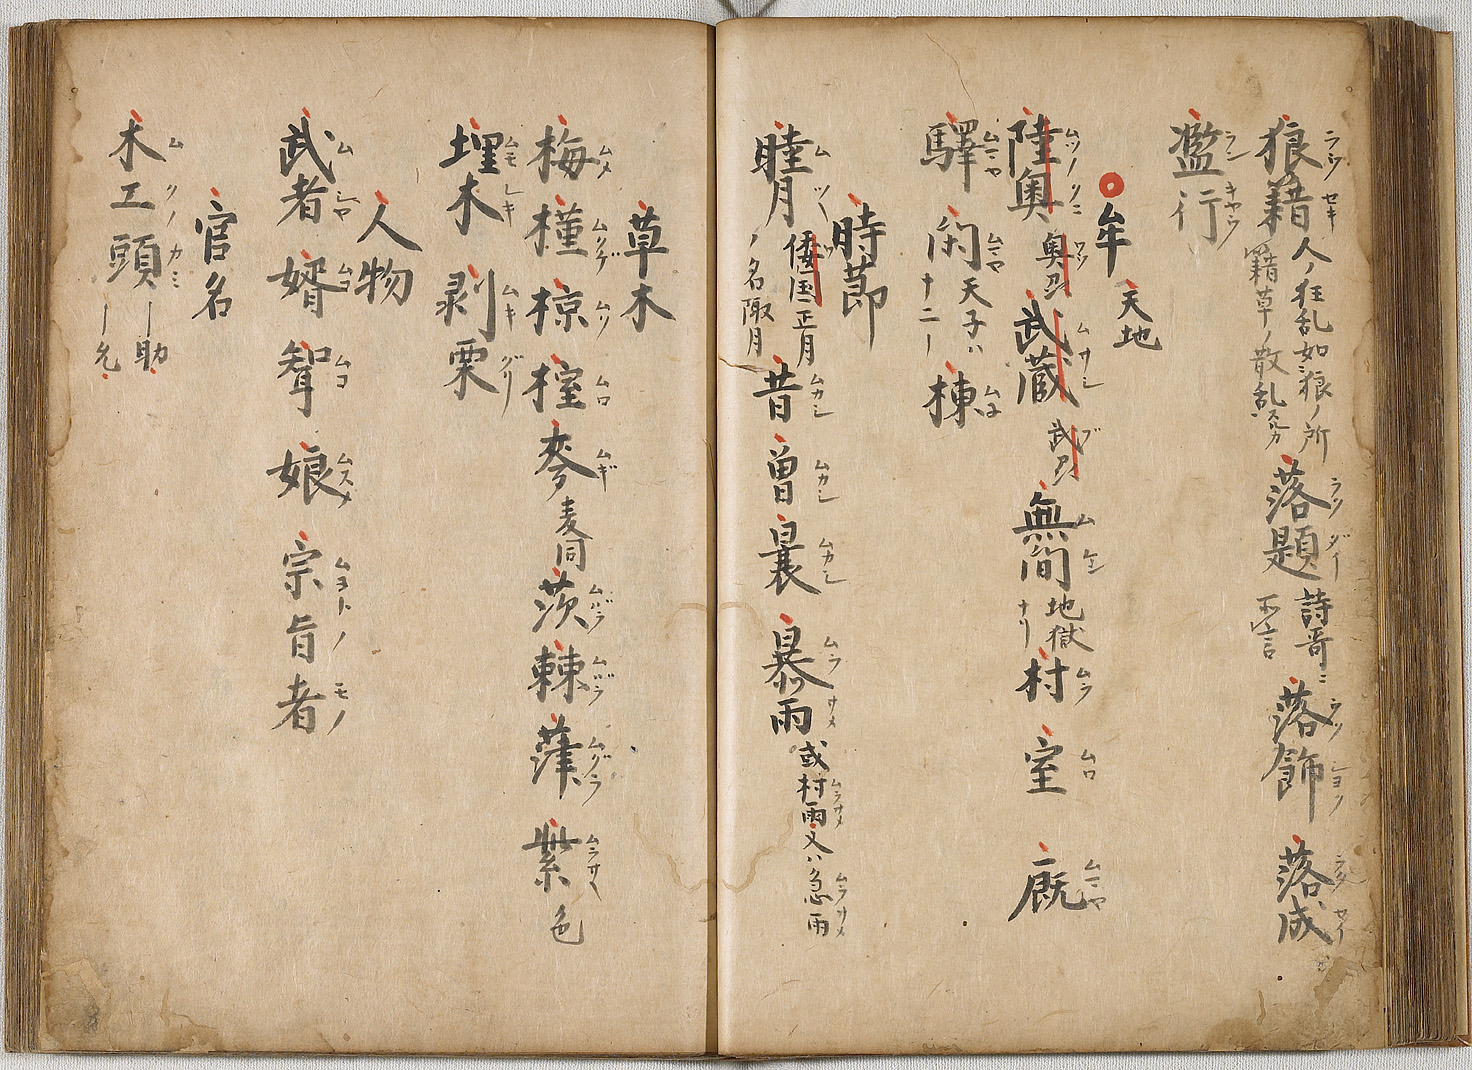 狼藉 ラウゼキ 人ノ狂乱如狼ノ所 籍草ノ散乱 落題 ラクダイ 詩哥ニ不言 落飾 ラクショク 落成 セイ
濫行 ランキヤウ
牟 天地
陸奥 ムツノクニ 奥刕 武蔵 ムサシ 武刕 ブ 無間 ムケン 地獄ナリ 村 ムラ 室 ムロ 厩 ムマヤ
驛 ムマヤ 閑 ムマヤ 天子ハ十二ー 棟 ムネ
時節
睦月 ムツキ 倭国正月ノ名陬月 昔 ムカシ 曽 ムカシ 曩 ムカシ 暴雨 ムラサメ 或村雨 ムラサメ 又ハ急雨 ムラサメ
草木
梅 ムメ 槿 ムクゲ 椋 ムク 樘 ムロ 麥 ムギ 麦同 茨 ムバラ 棘 ムバラ 葎 ムグラ 紫 ムラサキ 色
埋木 ムモレキ 剥栗 ムキグリ
人物
武者 ムシヤ 婿 ムコ 聟 ムコ 娘 ムスメ 宗旨者 ムネトノモノ
官名
木工頭 ムクノカミ ー助 ー允